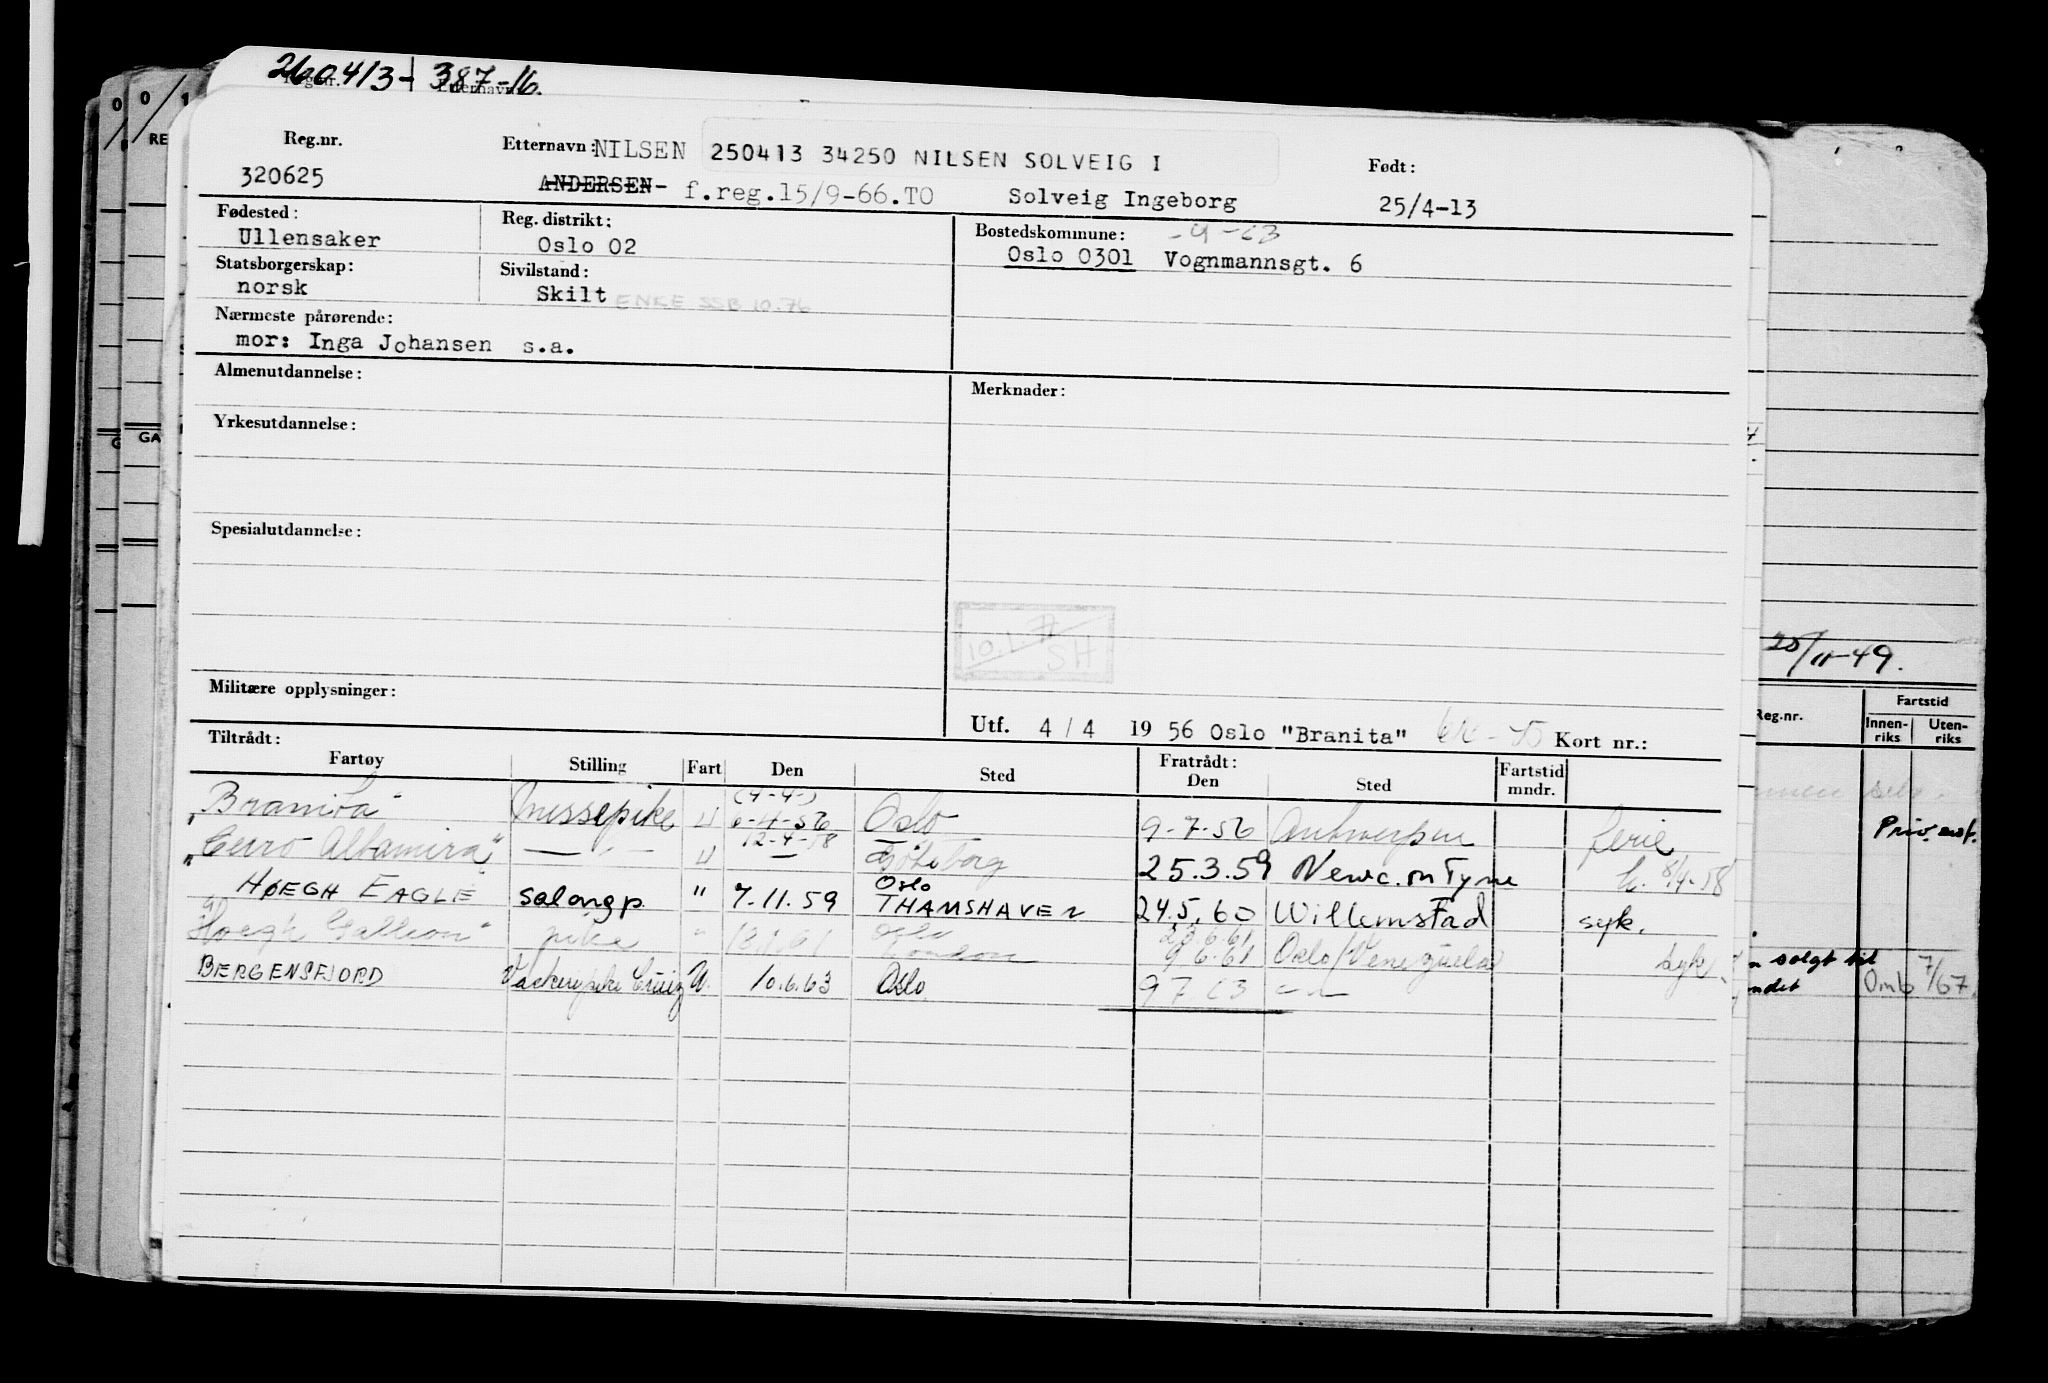 260413- 387-16.
Reg.nr. Etternavn: NILSEN 250413 34250 NILSEN SOLVEIG I Født:
320625 ANDERSEN- f.reg.15/9-66.TO Solveig Ingeborg 25/4-13
Fødested: Reg. distrikt: Bostedskommune:
Ullensaker Oslo 02 Oslo 0301 Vognmannsgt. 6
Statsborgerskap: Sivilstand:
norsk Skilt ENKE SSB 10.76
Nærmeste pårørende:
mor: Inga Johansen s.a.
Almenutdannelse: Merknader:
Yrkesutdannelse:
Spesialutdannelse:
10.1.77
SH
25/11-49.
Militære opplysninger:
Utf. 4/4 1956 Oslo "Branita" Kort nr.:
Tiltrådt: Fratrådt:
Fartøy Stilling Fart Den Sted Den Sted Fartstid mndr.
(4-4-)
"Branita" messepike U 6-4-56 Oslo 9-7-56 Antwerpen ferie
12-4-58
"Cerro Altamira" U Göteborg 25.3.59 Newc. on Tyne
HØEGH EAGLE salongp. " 7.11.59 Oslo THAMSHAVEN 24.5.60 Willemstad syk.
"Hoegh Galleon" pike " Oslo London 23.6.61 9.6.61 Oslo/Venezuela syk
BERGENSFJORD U. 10.6.63 Oslo 9 7 63
Reg.nr. Fartstid
Innenriks Utenriks
solgt til
Omb 7/67.